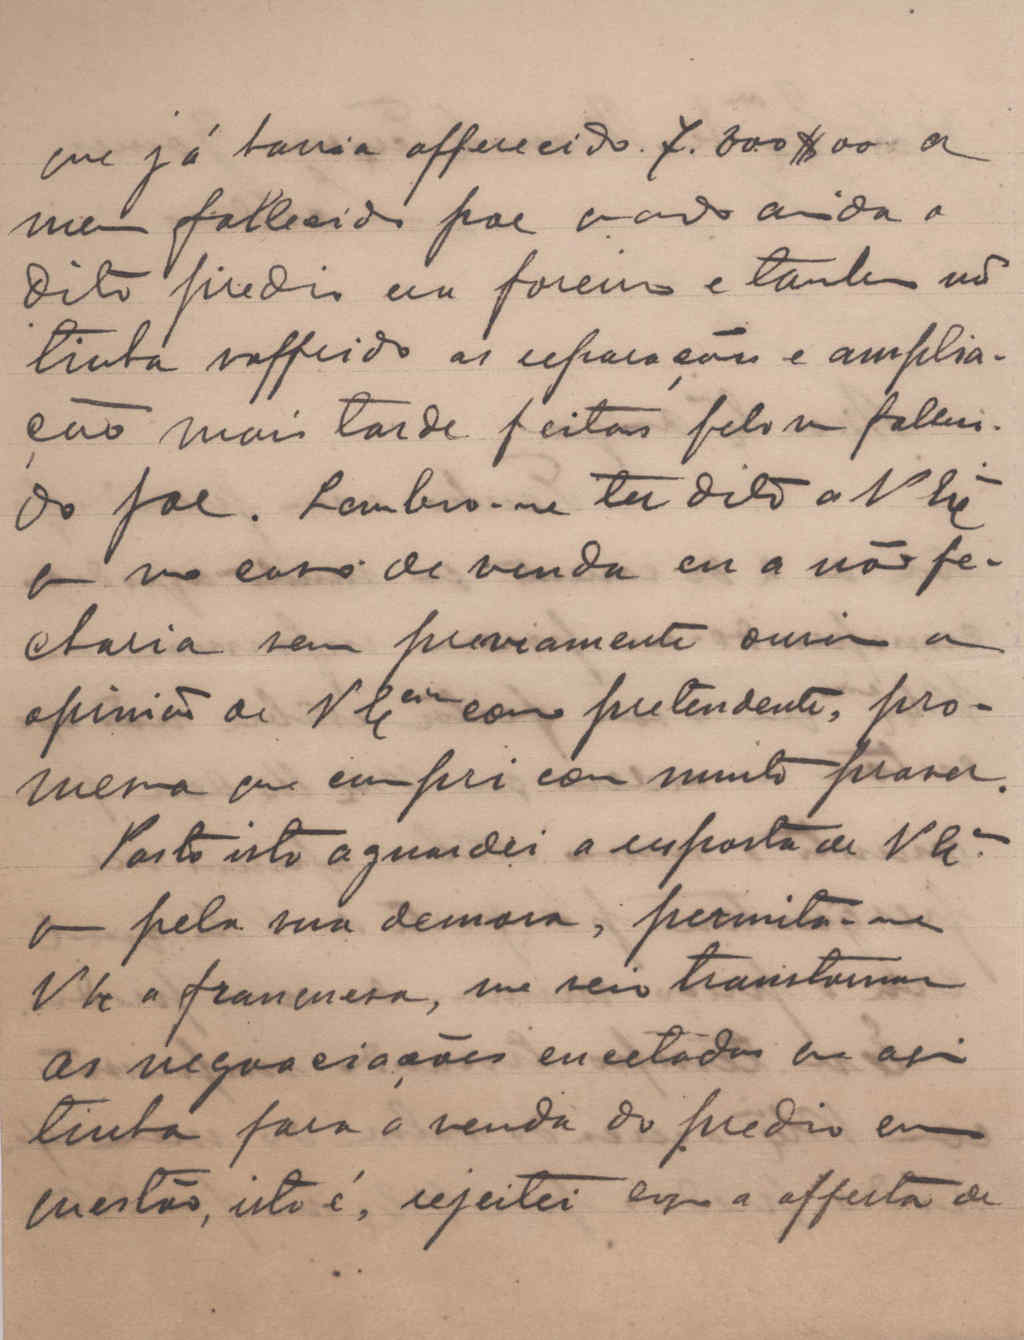 que já havia offerecido 7.000$00 a
meu fallecido pae quando ainda o
dito predio era foreiro e tambem não
tinha soffrido as reparações e amplia-
ção mais tarde feitas pelo meu falleci-
do pae. Lembro-me ter dito a V Exª
que no caso de venda eu a não fe-
charia sem previamente ouvir a
opinião de V Excia como pretendente, pro-
messa que cumpri com muito praser.
Posto isto aguardei a resposta de V Exª
que pela sua demora, permita-me
V Ex a franquesa, me veio transtornar
as negociações encetadas que aqui
tinha para a venda do predio em
questão, isto é, rejeitei a offerta de